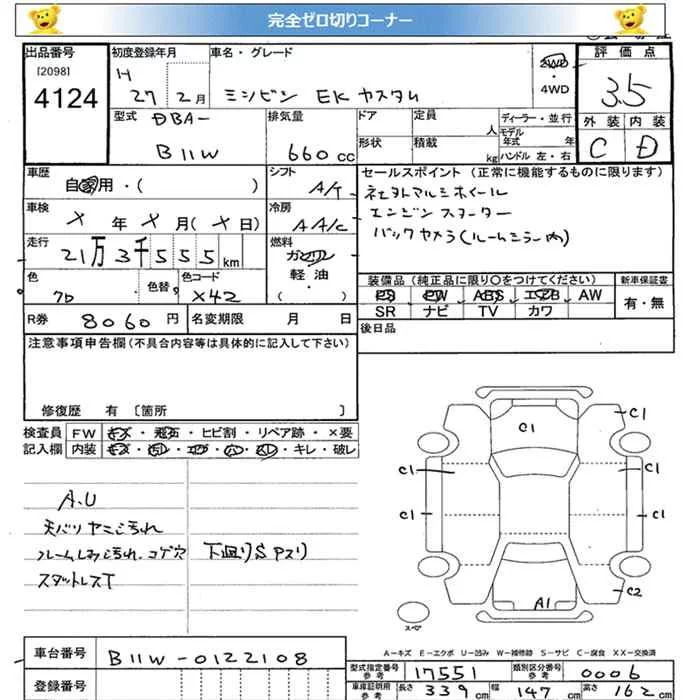 完全ゼロ切りコーナー
出品番号
[2098]
4124
初度登録年月
H
27 2月
車名・グレード
ミツビシ EK カスタム
2WD
4WD
評価点
3.5
外装 内装
C D
型式
DBA-
B11W
排気量
660 cc
ドア
定員
人
形状
積載
kg
ディーラー・並行
モデル年式 年
ハンドル 左・右
車歴
自家用・( )
シフト
A/T
車検
X 年 X 月(X 日)
冷房
AA/C
走行
21万3千555 km
燃料
ガソリン
軽油
( )
色
クロ
色替
色コード
X42
R券 8060 円
名変期限 月 日
セールスポイント(正常に機能するものに限ります)
社外アルミホイール
エンジンスターター
バックカメラ(ルームミラー内)
装備品(純正品に限り〇をつけてください)
PS PW ABS エアB AW
SR ナビ TV カワ
新車保証書
有・無
後日品
注意事項申告欄(不具合内容等は具体的に記入して下さい)
修復歴 有 〔箇所 〕
検査員記入欄
FW キズ・飛石・ヒビ割・リペア跡・×要
内装 キズ・汚レ・コゲ・穴・スレ・キレ・破レ
A.U
天バリヤニ汚れ
フレームしみ汚れ、コゲ穴
スタットレスT
下廻りS Pスリ
C1
C1
C1
C1
C1
C1
C2
A1
スペア
A－キズ E－エクボ U－凹み W－補修跡 S－サビ C－腐食 XX－交換済
車台番号
B11W-0122108
登録番号
型式指定番号
参考
17551
類別区分番号
参考
0006
車庫証明用
参考
長さ 339 cm
幅 147 cm
高さ 162 cm